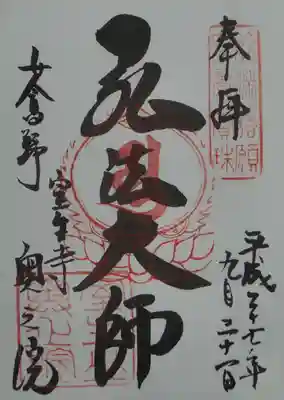 奉拝
平成二十七年
九月二十一日
弘法大師
女人高野
室生寺
奥之院